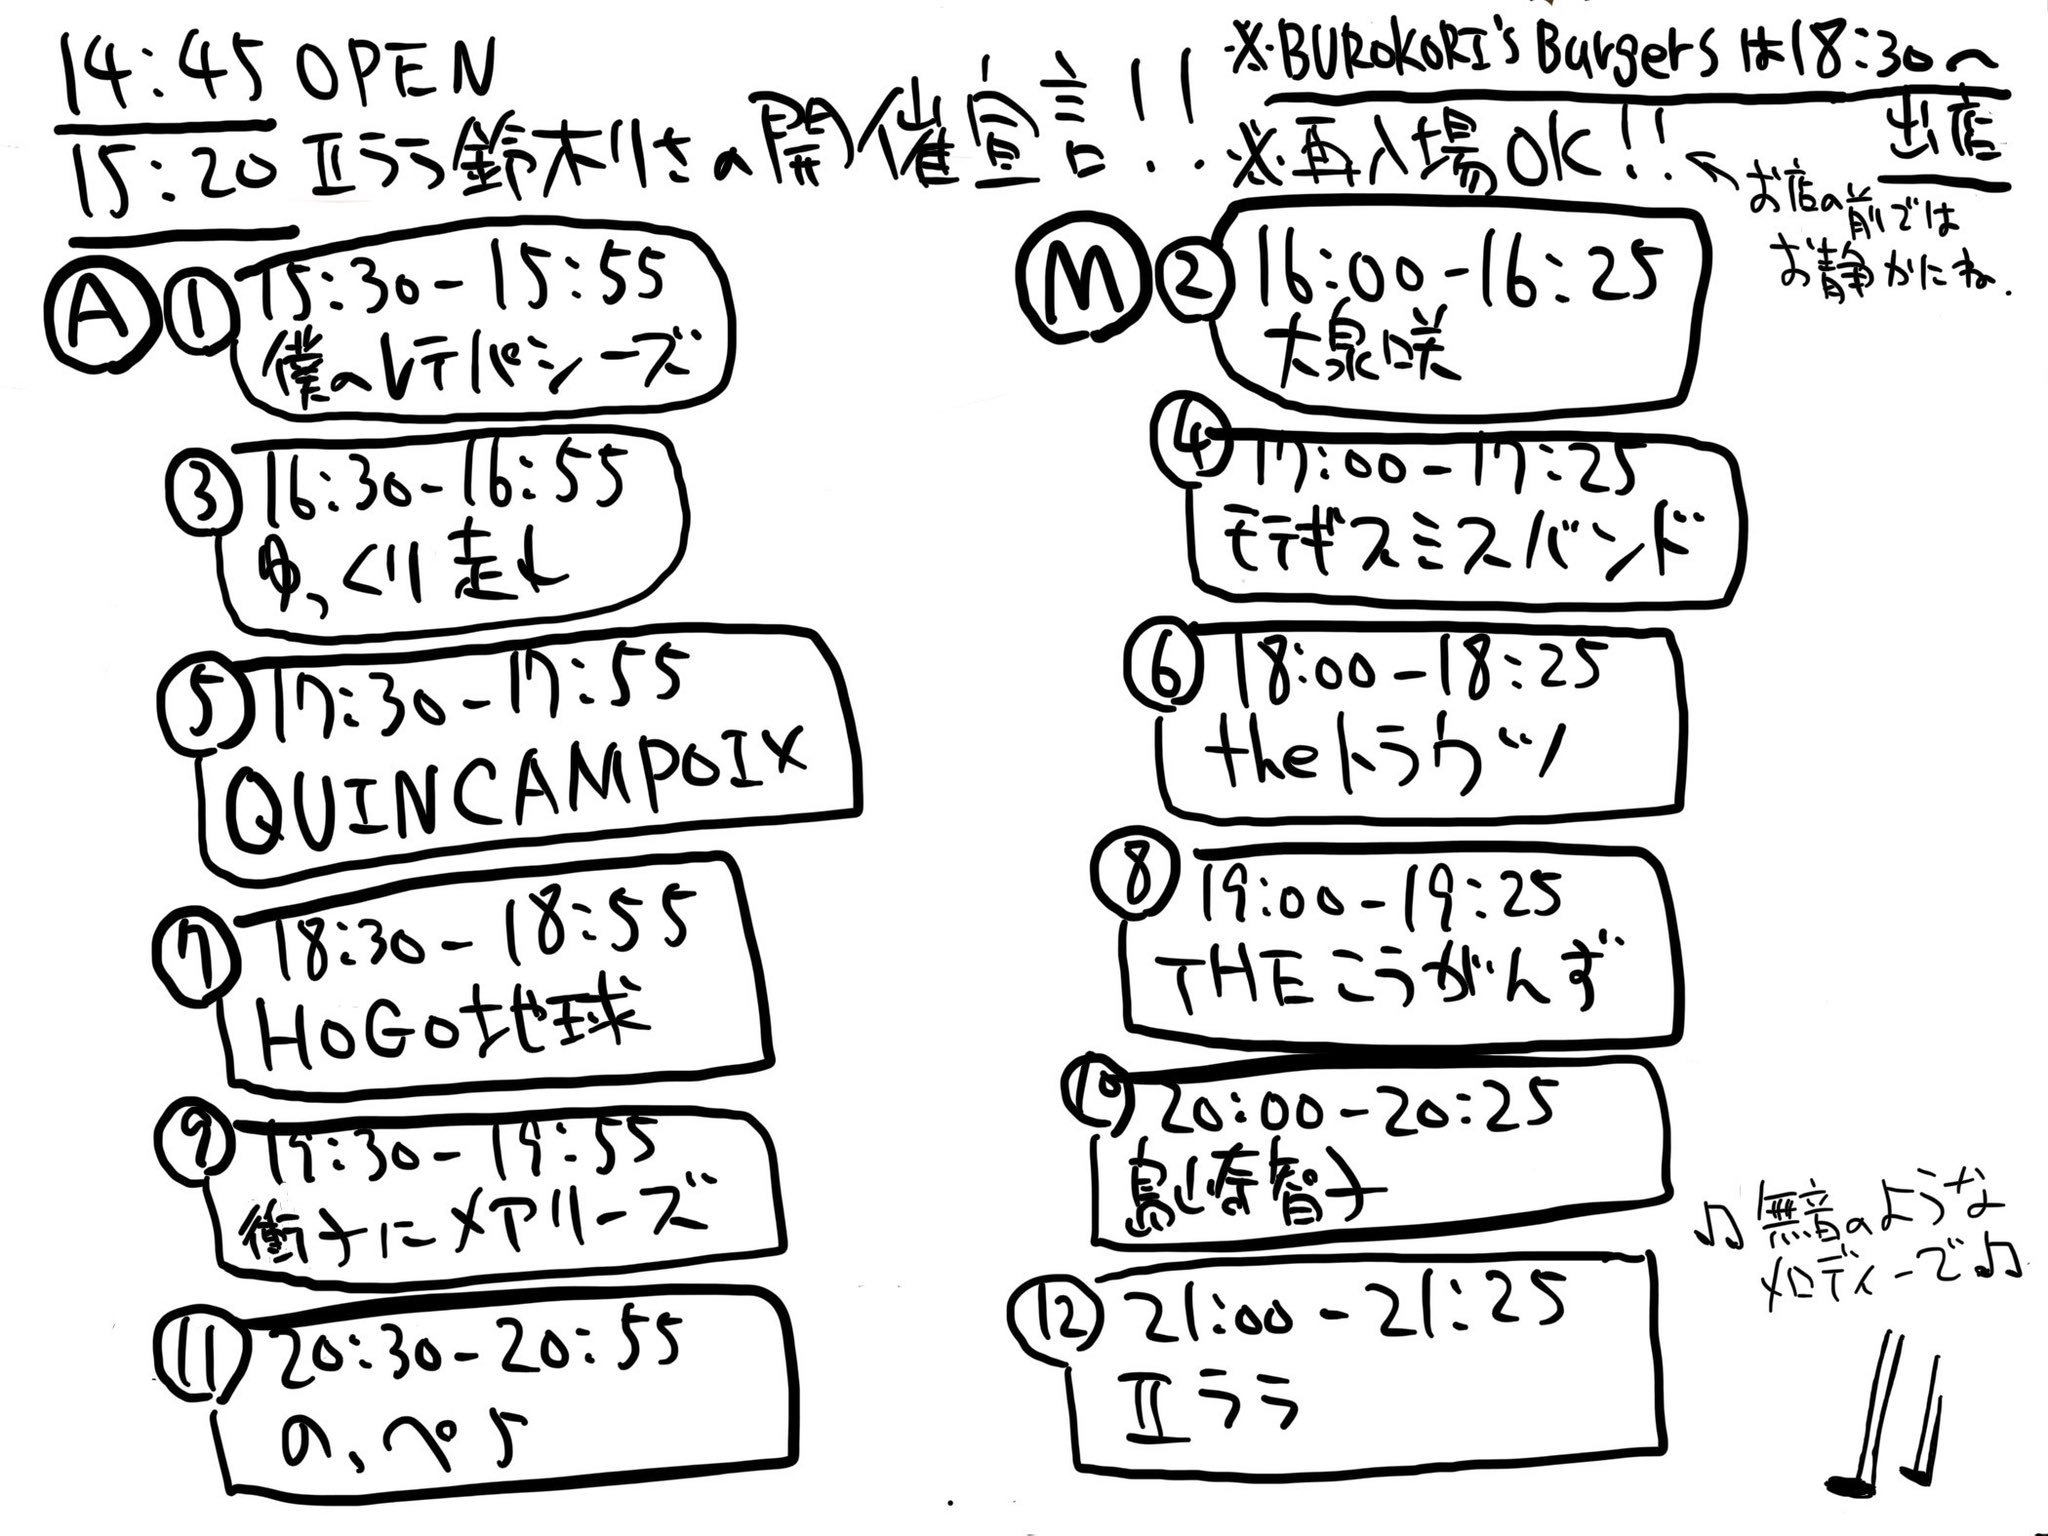 14:45 OPEN
15:20 Ⅱララ鈴木りさの開催宣言!!
※BUROKORI's Burgersは18:30〜
出店
※再入場OK!!
←お店の前では
お静かにね.
A
① 15:30-15:55
僕のレテパシーズ
③ 16:30-16:55
ゆっくり走れ
⑤ 17:30-17:55
QUINCAMPOIX
⑦ 18:30-18:55
HOGO地球
⑨ 19:30-19:55
衝井にメアリーズ
⑪ 20:30-20:55
のっぺら
M
② 16:00-16:25
大泉咲
④ 17:00-17:25
モテギスミスバンド
⑥ 18:00-18:25
theトラウツ
⑧ 19:00-19:25
THEこうがんず
⑩ 20:00-20:25
島崎智子
⑫ 21:00-21:25
Ⅱララ
♫無音のような
メロディーで♫
!!